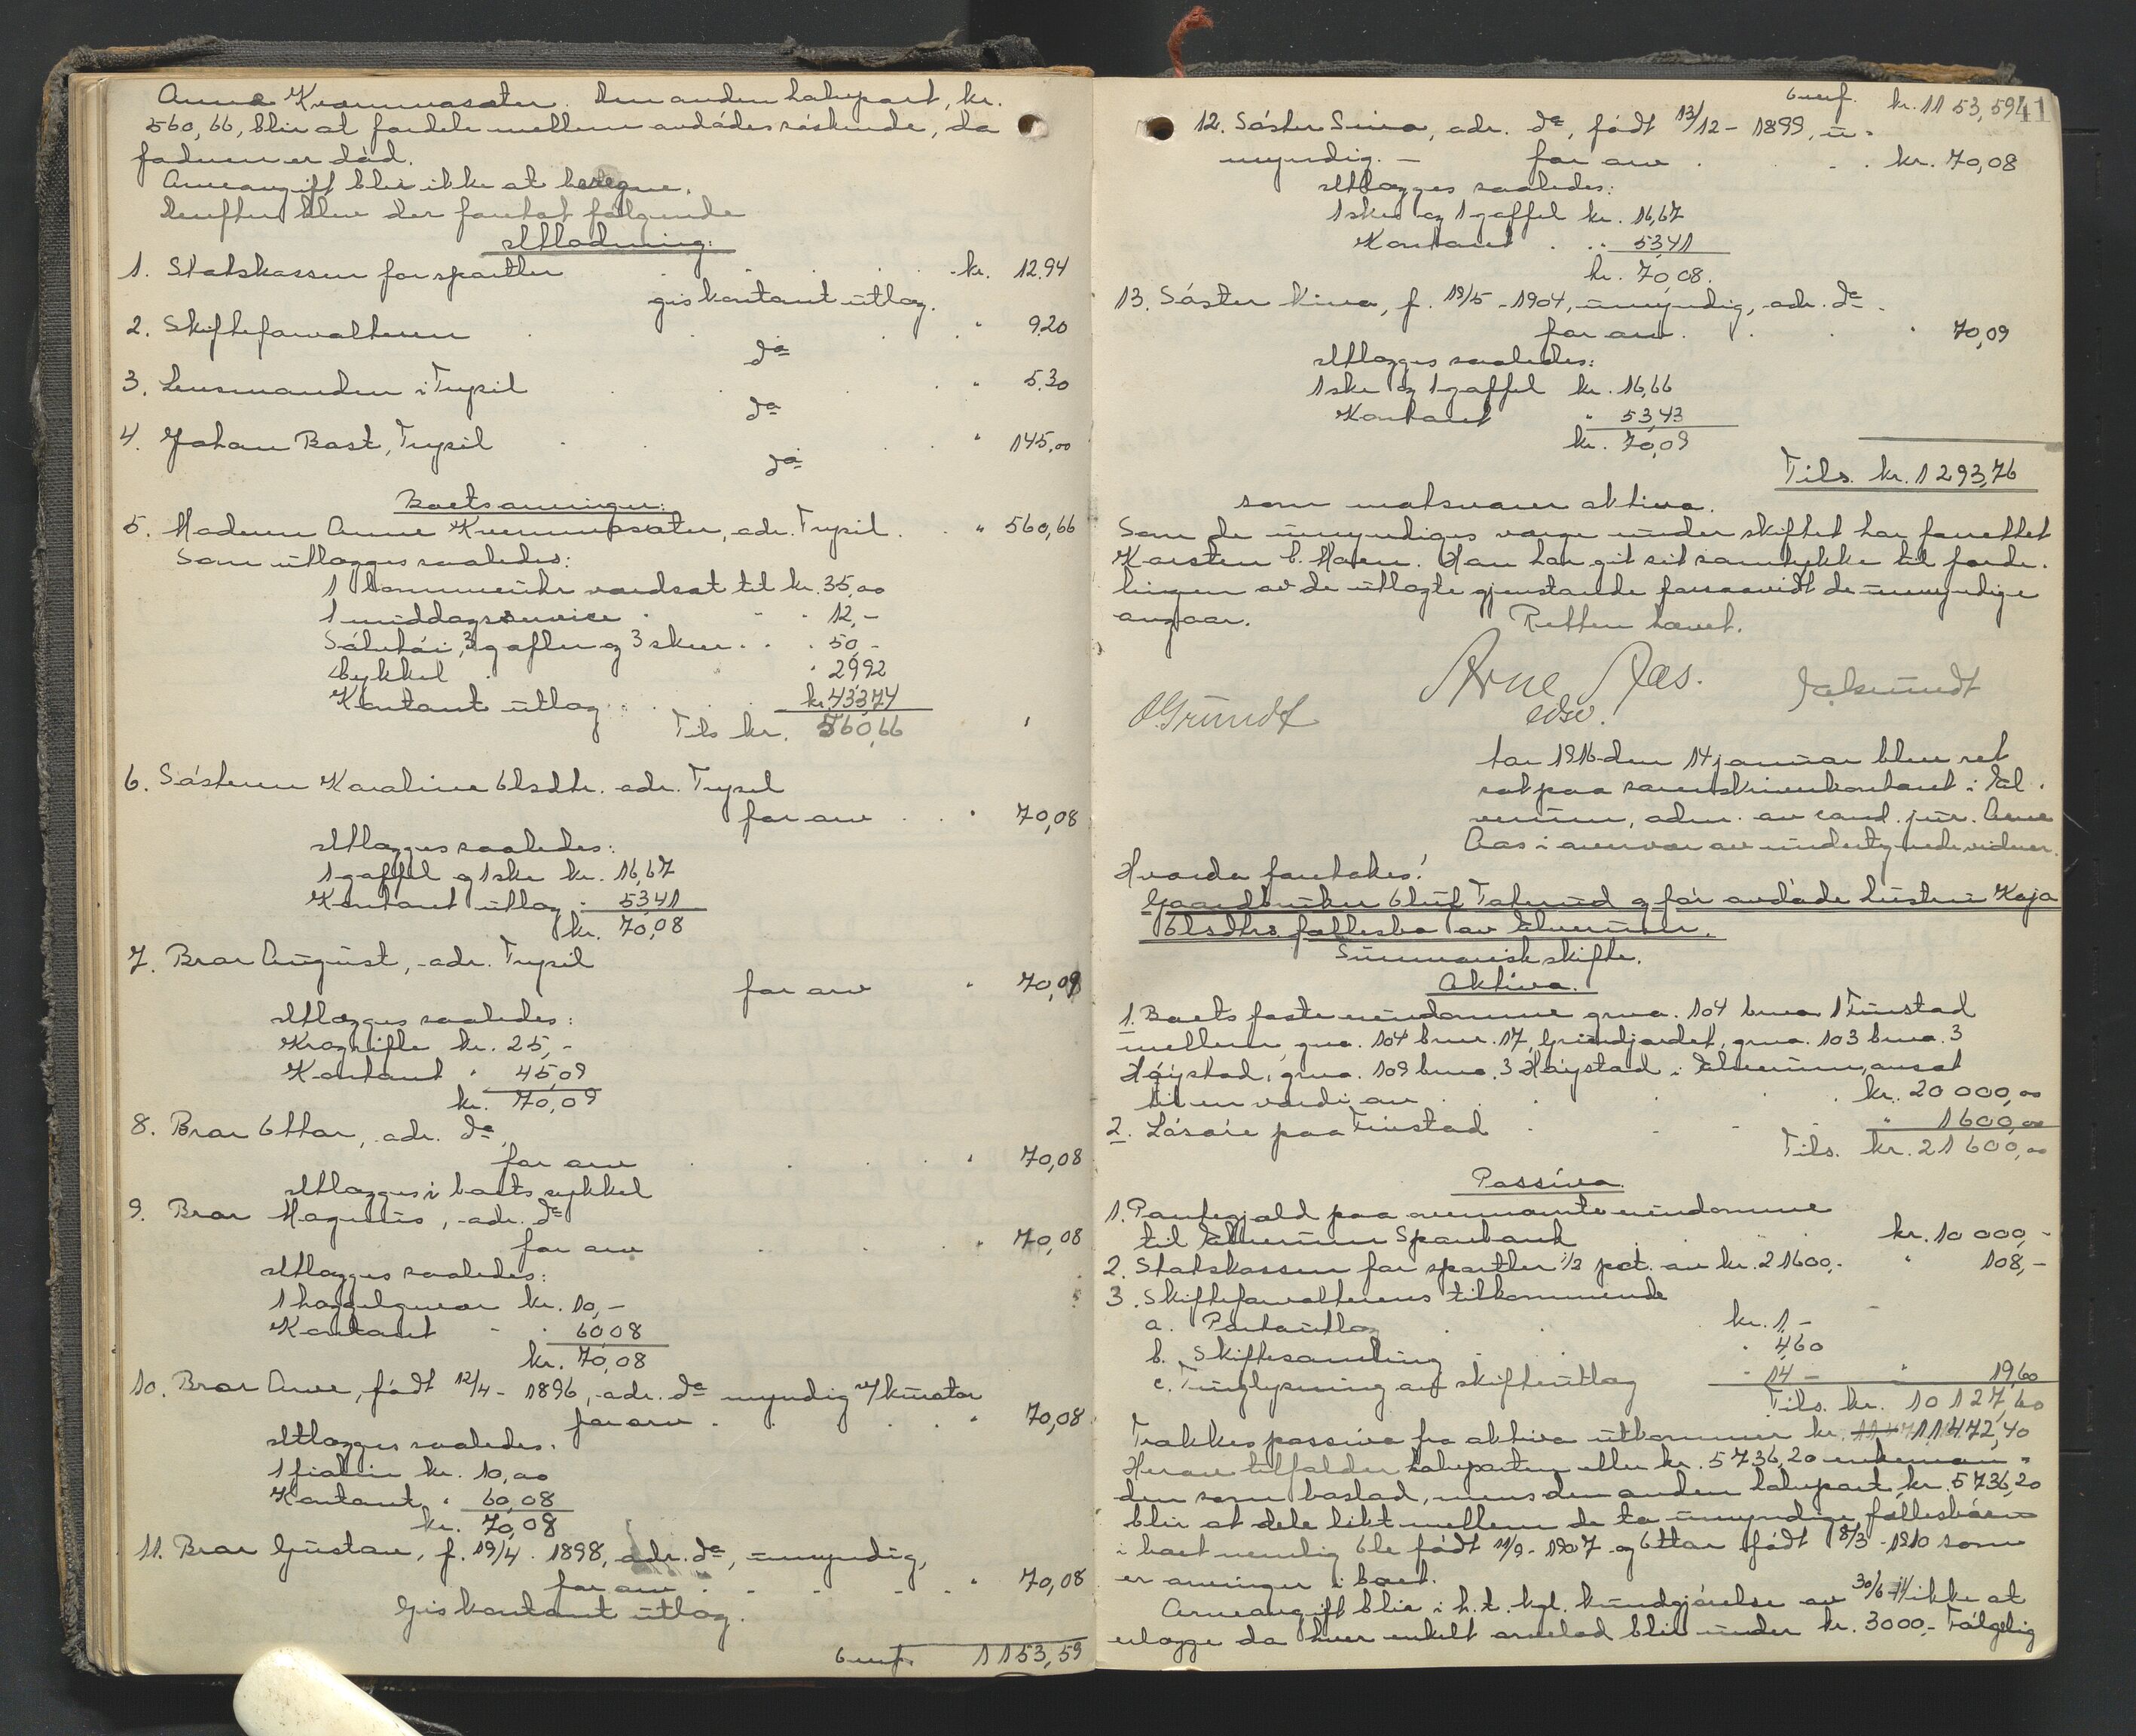 Anne Kvernmosæter. Den anden halvpart, kr.
560,66, blir at fordele mellem avdødes søskende, da
faderen er død.
Arveavgift blir ikke at beregne.
Derefter blev der foretat følgende
Utlodning:
1. Statskassen for sportler kr. 12.94
gis kontant utlæg.
2. Skifteforvalteren " 9.20
do
3. Lensmanden i Trysil " 5.30
do
4. Johan Bast, Trysil " 145,00
do
Boets arvinger:
5. Moderen Anne Kvernmosæter, adr. Trysil. " 560,66
Som utlægges saaledes:
1 lommeuhr værdsat til kr. 35,00
1 middagsservice " 12,-
Sølvtøi, 3 gafler og 3 skeer " 50,-
Cykkel " 29,92
Kontant utlæg kr. 433,74
Tils kr. 560,66
6. Søsteren Karoline Olsdtr. adr. Trysil
for arv " 70,08
Utlægges saaledes:
1 gaffel og 1 ske kr. 16,67
Kontant utlæg " 53,41
kr. 70,08
7. Bror August, adr. Trysil
for arv " 70,09
Utlægges saaledes:
Kragrifle kr. 25,-
Kontant " 45,09
kr. 70,09
8. Bror Ottar, adr. do
for arv " 70,08
Utlægges i boets sykkel
9. Bror Magnus, adr. do
for arv " 70,08
Utlægges saaledes:
1 haggelgevær kr. 10,-
Kontant " 60,08
kr. 70,08
10. Bror Arve, født 12/4 - 1896, adr. do myndig m/kurator
for arv " 70,08
Utlægges saaledes.
1 fiolin kr. 10,00
Kontant " 60,08
kr. 70,08
11. Bror Gustav, f. 19/4. 1898, adr. do, umyndig,
for arv " 70,08
Gis kontant utlæg.
Overf. 1153,59
Overf. kr. 1153,59 41
12. Søster Signa, adr. do, født 13/12 - 1899, u-
myndig. - for arv kr. 70,08
Utlægges saaledes:
1 ske og 1 gaffel kr. 16,67
Kontant " 53,41
kr. 70,08.
13. Søster Kina, f. 19/5 - 1904, umyndig, adr. do
for arv " 70,09
Utlægges saaledes:
1 ske og 1 gaffel kr. 16,66
Kontant " 53,43
kr. 70,09
Tils. kr. 1293,76
som motsvarer aktiva.
Som de umyndiges verge under skiftet har forrettet
Karsten O. Moren. Han har git sit samtykke til forde-
lingen av de utlagte gjenstande forsaavidt de umyndige
angaar. Retten hævet.
Arne Aas.
edsv.
O Grundt
Aar 1916 den 14 januar blev ret
sat paa sorenskriverkontoret i El-
verum, adm. av cand. jur. Arne
Aas i overvær av undertegnede vidner.
Hvorda foretokes:
Gaardbruker Oluf Taterud og før avdøde hustru Kaja
Olsdtrs. fællesbo av Elverum.
Summarisk skifte.
Aktiva.
1. Boets faste eiendomme grno. 104 brno 1 Finstad
mellem, gno. 104 brnr. 17, Grindjordet, grno. 103 brno. 3
Høistad, grno. 109 brno. 3 Høystad i Elverum, ansat
til en værdi av kr. 20 000,00
2. Løsøre paa Finstad " 1600,00
Tils. kr. 21600,00
Passiva.
1. Pantegjæld paa ovennævnte eiendomme
til Elverum Sparebank kr. 10 000,-
2. Statskassen for sportler 1/2 pct. av kr. 21600,- " 108,-
3. Skifteforvalterens tilkommende
a. Portoutlæg kr. 1,-
b. Skiftesamling " 4,60
c. Tinglysning av skifteutlæg " 14 - " 19,60
Tils. kr. 10127,60
Trækkes passiva fra aktiva utkommer kr. 11472,40
Herav tilfalder halvparten eller kr. 5736,20 enkeman-
den som boslod, mens den anden halvpart kr. 5736,20
blir at dele likt mellem de to umyndige fællesbørn
i boet nemlig Ole født 11/9 - 1907 og Ottar født 8/3 - 1910 som
er arvinger i boet.
Arveavgift blir i h. t. kgl. kundgjørelse av 30/6 - 11 ikke at
erlægge da hver enkelt arvelod blir under kr. 3000,- Følgelig